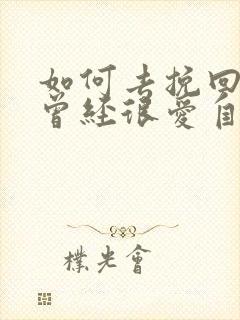 如何去挽回
曾经很爱自
樸光會